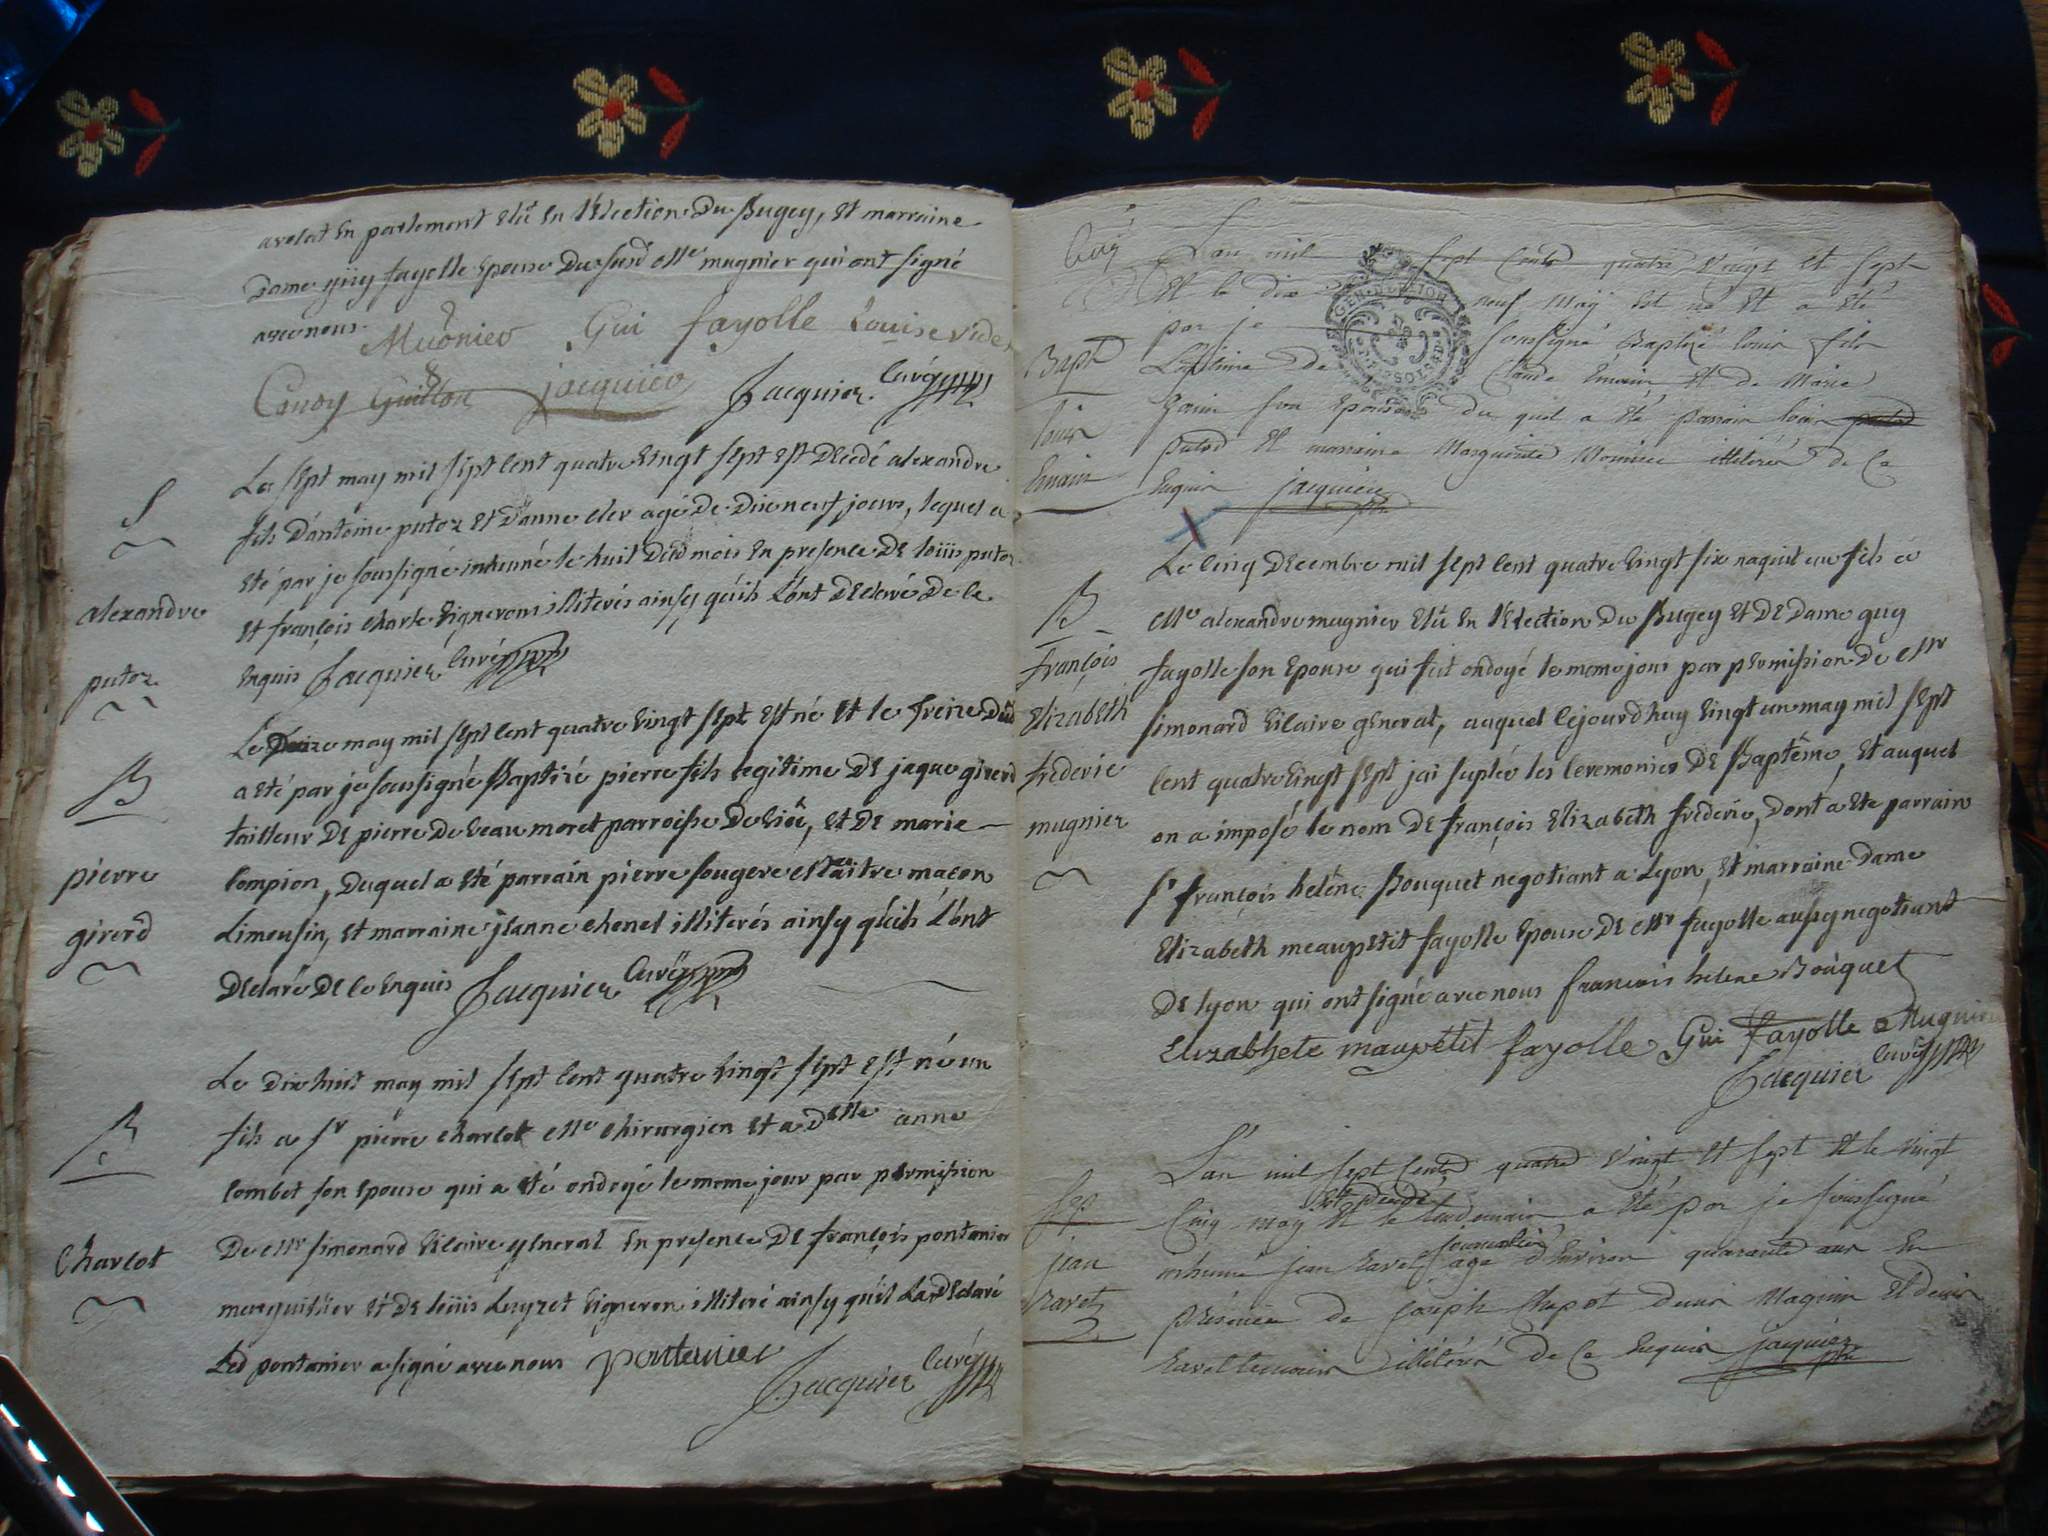 avocat en parlement elû en l'élection du Bugey, et marraine
dame guy fayolle epouse du susd mre mugnier qui ont signé
avec nous.
Mugnier Gui fayolle Louise
Guillon jacquier Jacquier curé
S
alexandre
putoz
Le sept may mil sept cent quatre vingt sept est décédé alexandre
fils d'antoine putoz et d'anne cler agé de dixneuf jours, lequel a
eté par je soussigné inhumé le huit dud mois en presence de loüis putoz
et françois charle vignerons illiterés ainsy qu'ils l'ont declaré de ce
enquis Jacquier curé
B
pierre
girerd
Le may mil sept cent quatre vingt sept est né et le treize dud
a eté par je soussigné Baptizé pierre fils legitime de jaque girerd
tailleur de pierre de veau moret parroisse de , et de marie
compion, duquel a eté parrain pierre fougere maitre macon
Limousin, et marraine jeanne chenel illiterés ainsy qu'ils l'ont
declaré de ce enquis Jacquier curé
B
Charcot
Le dix huit may mil sept cent quatre vingt sept est né un
fils a sr pierre charcot mre chirurgien et a delle anne
combet son epouse qui a eté ondoyé le meme jour par permission
de mr simonard vicaire general en presence de françois pontanier
marguillier et de loüis vigneron illiteré ainsy qu'il l'a declaré
led pontanier a signé avec nous pontanier
Jacquier curé
Bapt
louis
L'an mil sept cents quatre vingt et sept
et le dix neuf may est né et a été
par je soussigné Baptizé louis fils
Légitime de Claude et de Marie
son épouse du quel a été parrain louis
putod et marraine Marguerite illitérés de ce
enquis jacquier
ptre
B
françois
Elizabeth
frederic
mugnier
Le cinq decembre mil sept cent quatre vingt six naquit un fils a
mre alexandre mugnier elû en l'election du Bugey et de dame guy
fayolle son epouse qui fut ondoyé le meme jour par permission de mr
simonard vicaire general, auquel cejourdhuy vingt un may mil sept
cent quatre vingt sept jai suplée les ceremonies de Baptême, et auquel
on a imposé le nom de françois Elizabeth frederic, dont a ete parrain
sr françois helène Bouquet negotiant a Lyon, et marraine dame
Elizabeth meaupetit fayolle epouse de mr fayolle aussy negotiant
de lyon qui ont signé avec nous francois helene Bouquet
Elizabhete maupetit fayolle Gui fayolle Mugnier
Jacquier curé
Sep
jean
ravet
L'an mil sept cents quatre vingt et sept et le vingt
cinq may est decedé et le lendemain a été par je soussigné
inhumé jean ravet journalier agé d'environ quarante ans en
présence de joseph Chapot denis Magnin et denis
ravet temoins illitérés de ce enquis jacquier
ptre